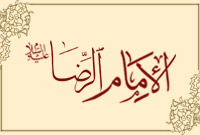 الإمام الرضا عليه السلام